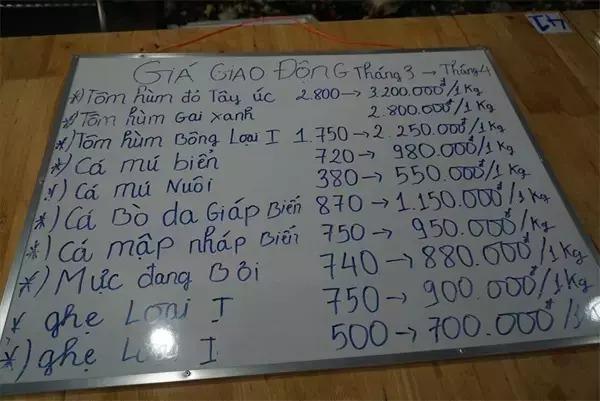 GIÁ GIAO ĐỘNG Tháng 3 → Tháng 4
*) Tôm hùm đỏ Tây úc 2.800 → 3.200.000đ/1Kg
*) Tôm hùm Gai xanh 2.800.000đ/1Kg
*) Tôm hùm Bông Loại I 1.750 → 2.250.000đ/1Kg
*) Cá mú biển 720 → 980.000đ/1Kg
*) Cá mú Nuôi 380 → 550.000đ/1Kg
*) Cá Bò da Giáp Biển 870 → 1.150.000đ/1Kg
*) Cá mập nháp Biển 750 → 950.000đ/1Kg
*) Mực đang Bơi 740 → 880.000đ/1Kg
* ghẹ Loại I 750 → 900.000đ/1Kg
*) ghẹ I 500 → 700.000đ/1